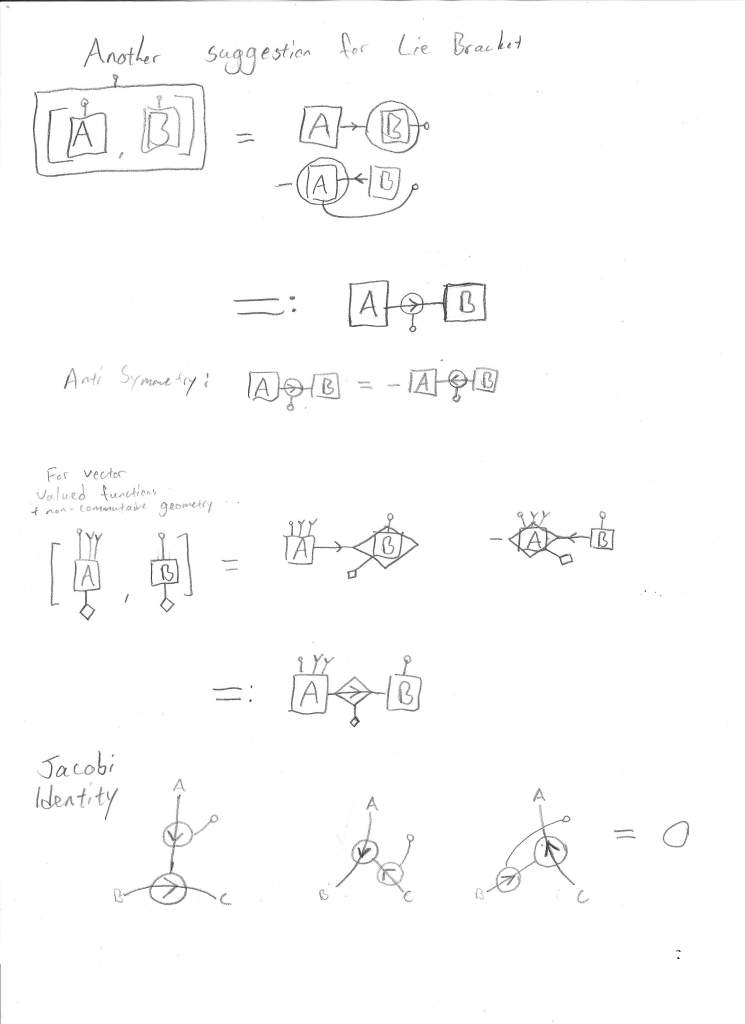 Another suggestion for Lie Bracket
[A, B] = A B
- A B
=: A B
Anti Symmetry: A B = - A B
For vector
valued functions
+ non-commutative geometry ...
[A, B] = A B - A B ...
=: A B
Jacobi
Identity
A A A
= 0
B C B C B C